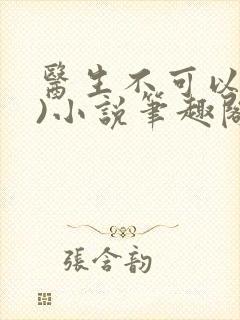 醫生不可以
)小說筆趣閣
張含韵